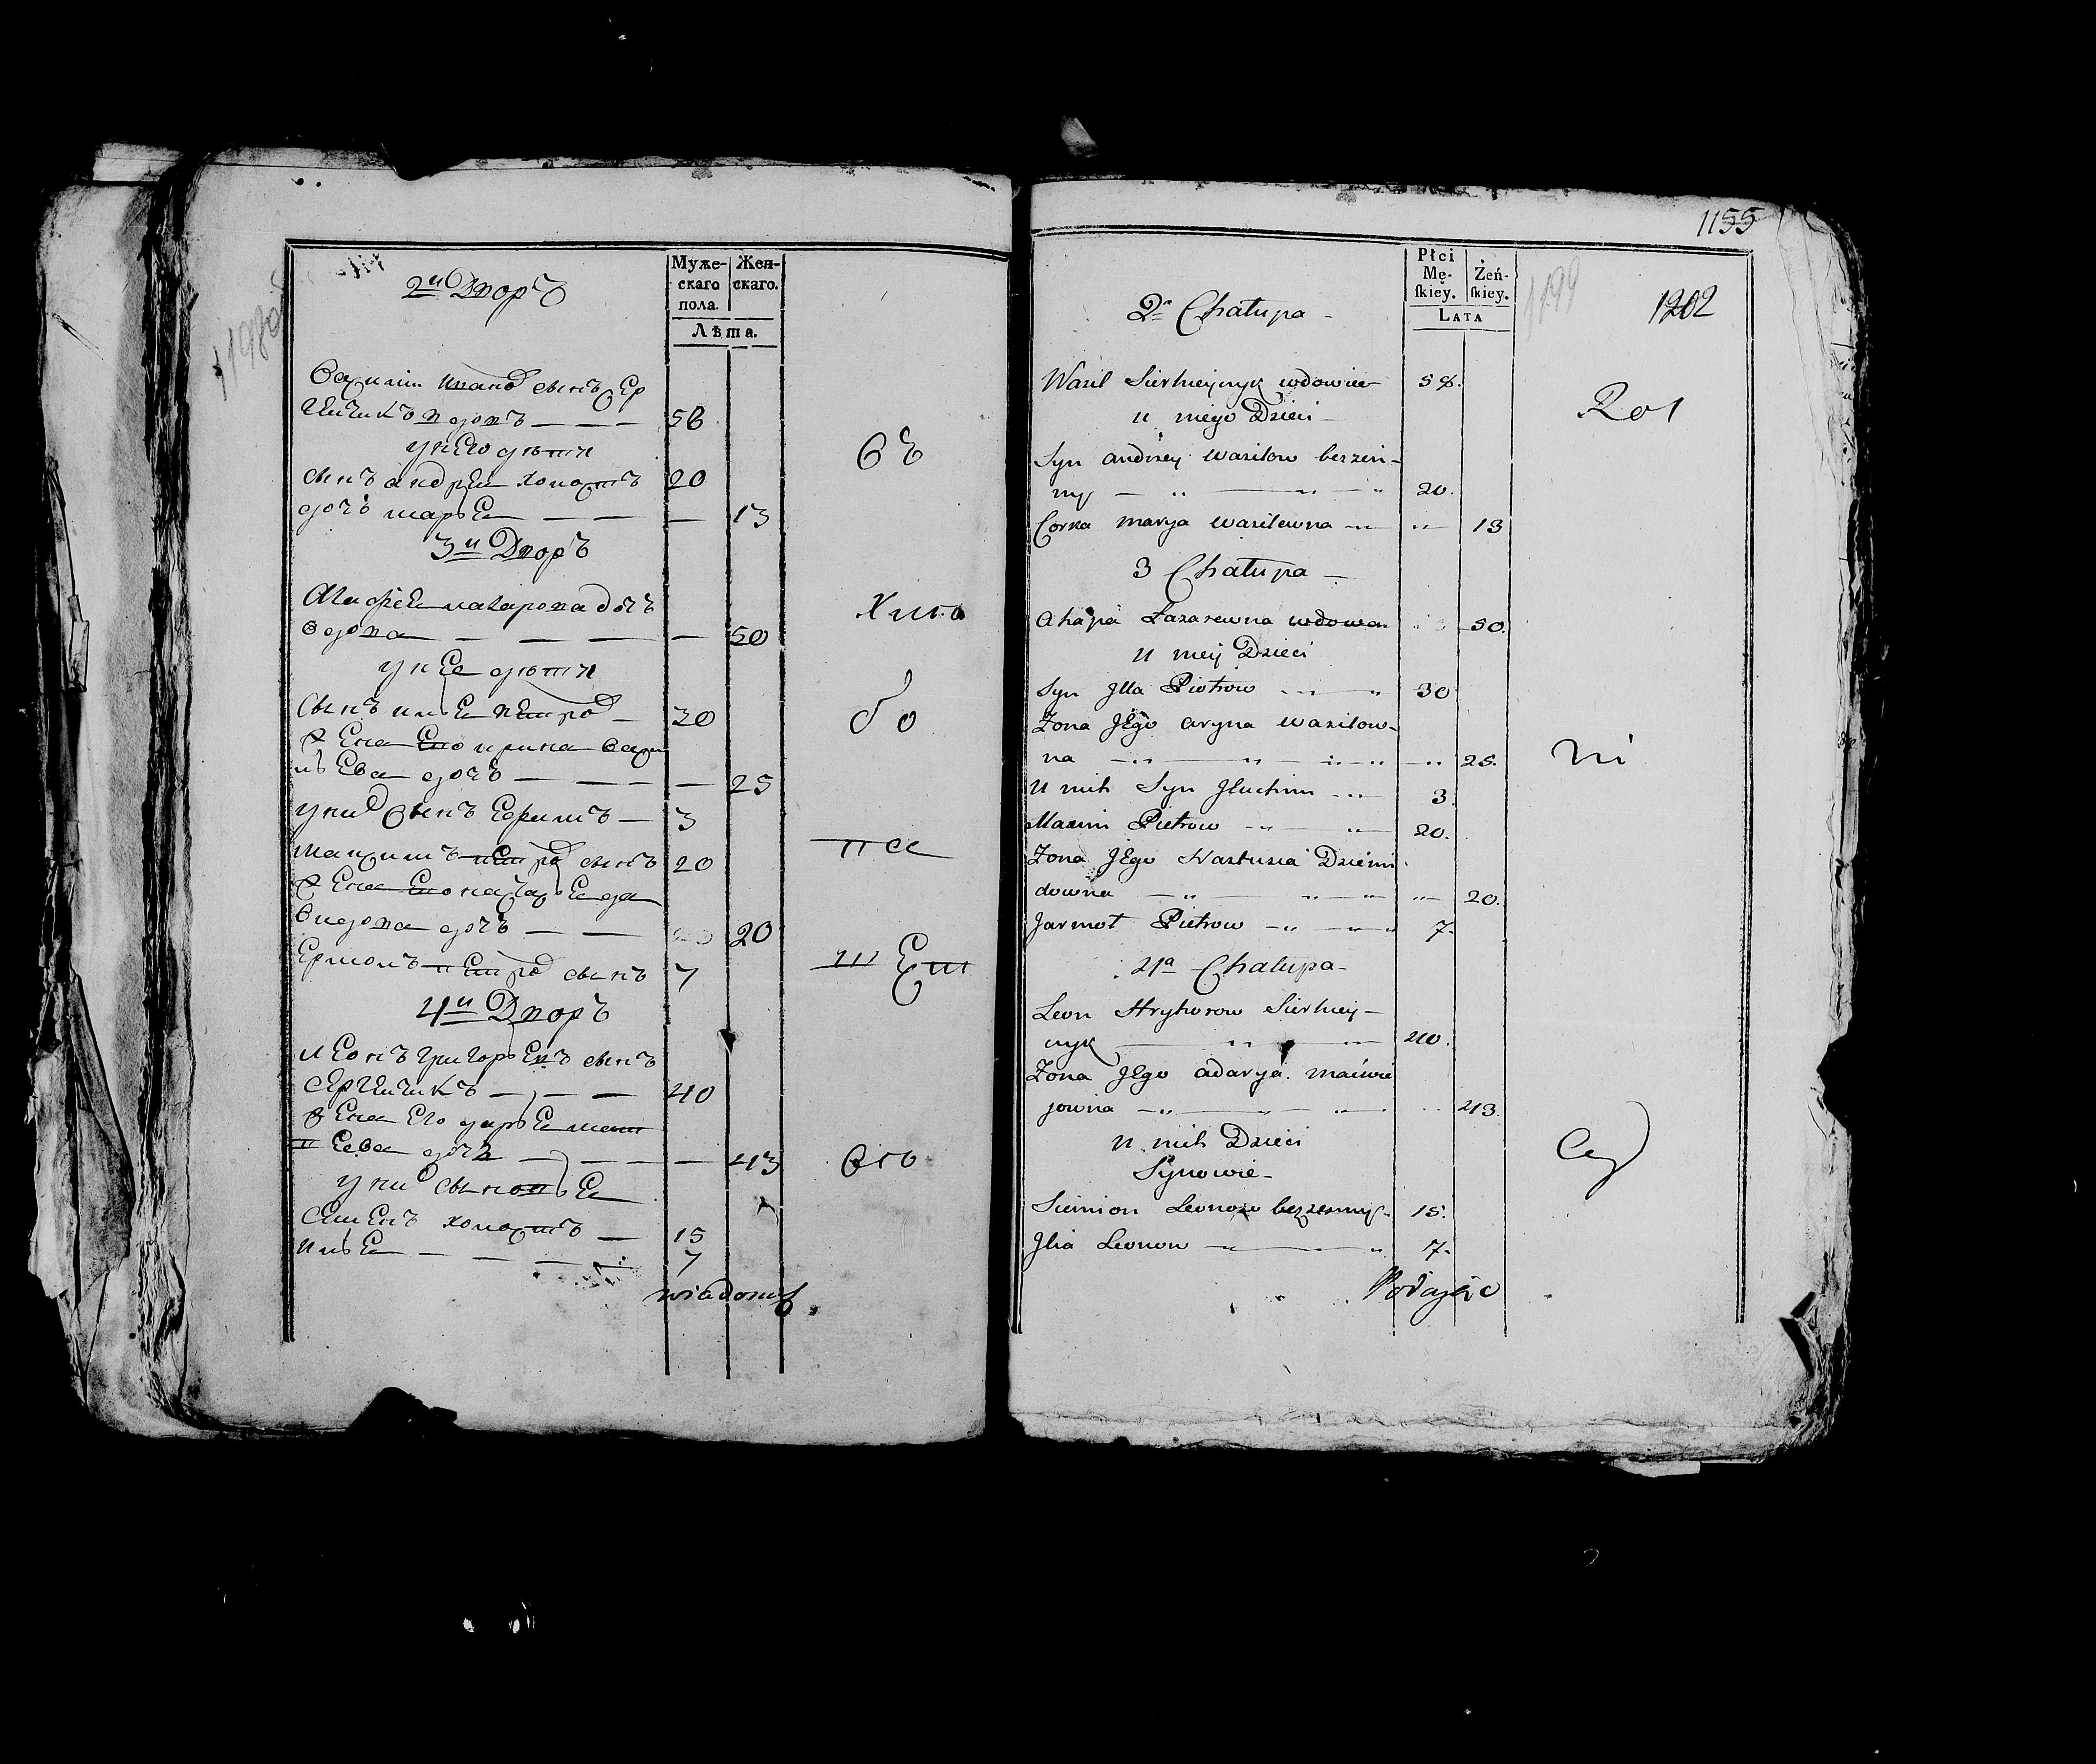 2й Дворъ
Муже-
скаго
пола.
Жен-
скаго.
Лѣта.
Василій Иванов сынъ Сер
гейчикъ вдовъ — — — 58
у него дѣти
сынъ андрей холостъ 20
дочь марья — — — 13
3й Дворъ
Агафья лазарова дочь
вдова — — — — 50
у нее дѣти
сынъ илья петров — 30
жена его ирина васи
льева дочь — — — — 25
у них сынъ Ефимъ — 3
максимъ петров сынъ 20
жена его настасья де
видова дочь — — 20
Ермолъ петров сынъ 7
4й Дворъ
леонъ григорьевъ сынъ
сергейчикъ — — — 40
жена его дарья мат
веева дочь — — — — 43
у них сыновья
семенъ холостъ — 15
илья — — — — 7
wiadomy
1155
1199
1202
Płci
Mę-
skiey.
Żeń-
skiey.
LATA
2a Chałupa
Wasil Sierhiejczyk wdowiec 58.
u niego Dzieci
Syn andrzey wasilow bezżen-
ny 20.
Corka marya wasilewna 13
3 Chałupa
Ahapa Łazarewna wdowa 50.
u niey Dzieci
Syn Jlla Piotrow 30
Żona Jego aryna wasilow-
na 25.
u nich Syn Jluchim 3.
Maxim Pietrow 20.
Żona Jego Nastusia Dziemi
downa 20.
Jarmoł Pietrow 7.
4a Chałupa
Leon Hryhorow Sierhiey-
czyk 40.
Żona Jego adarya maćwie
jowna 43.
u nich Dzieci
Synowie
Siemion Leonow bezżenny 15.
Jlia Leonow 7.